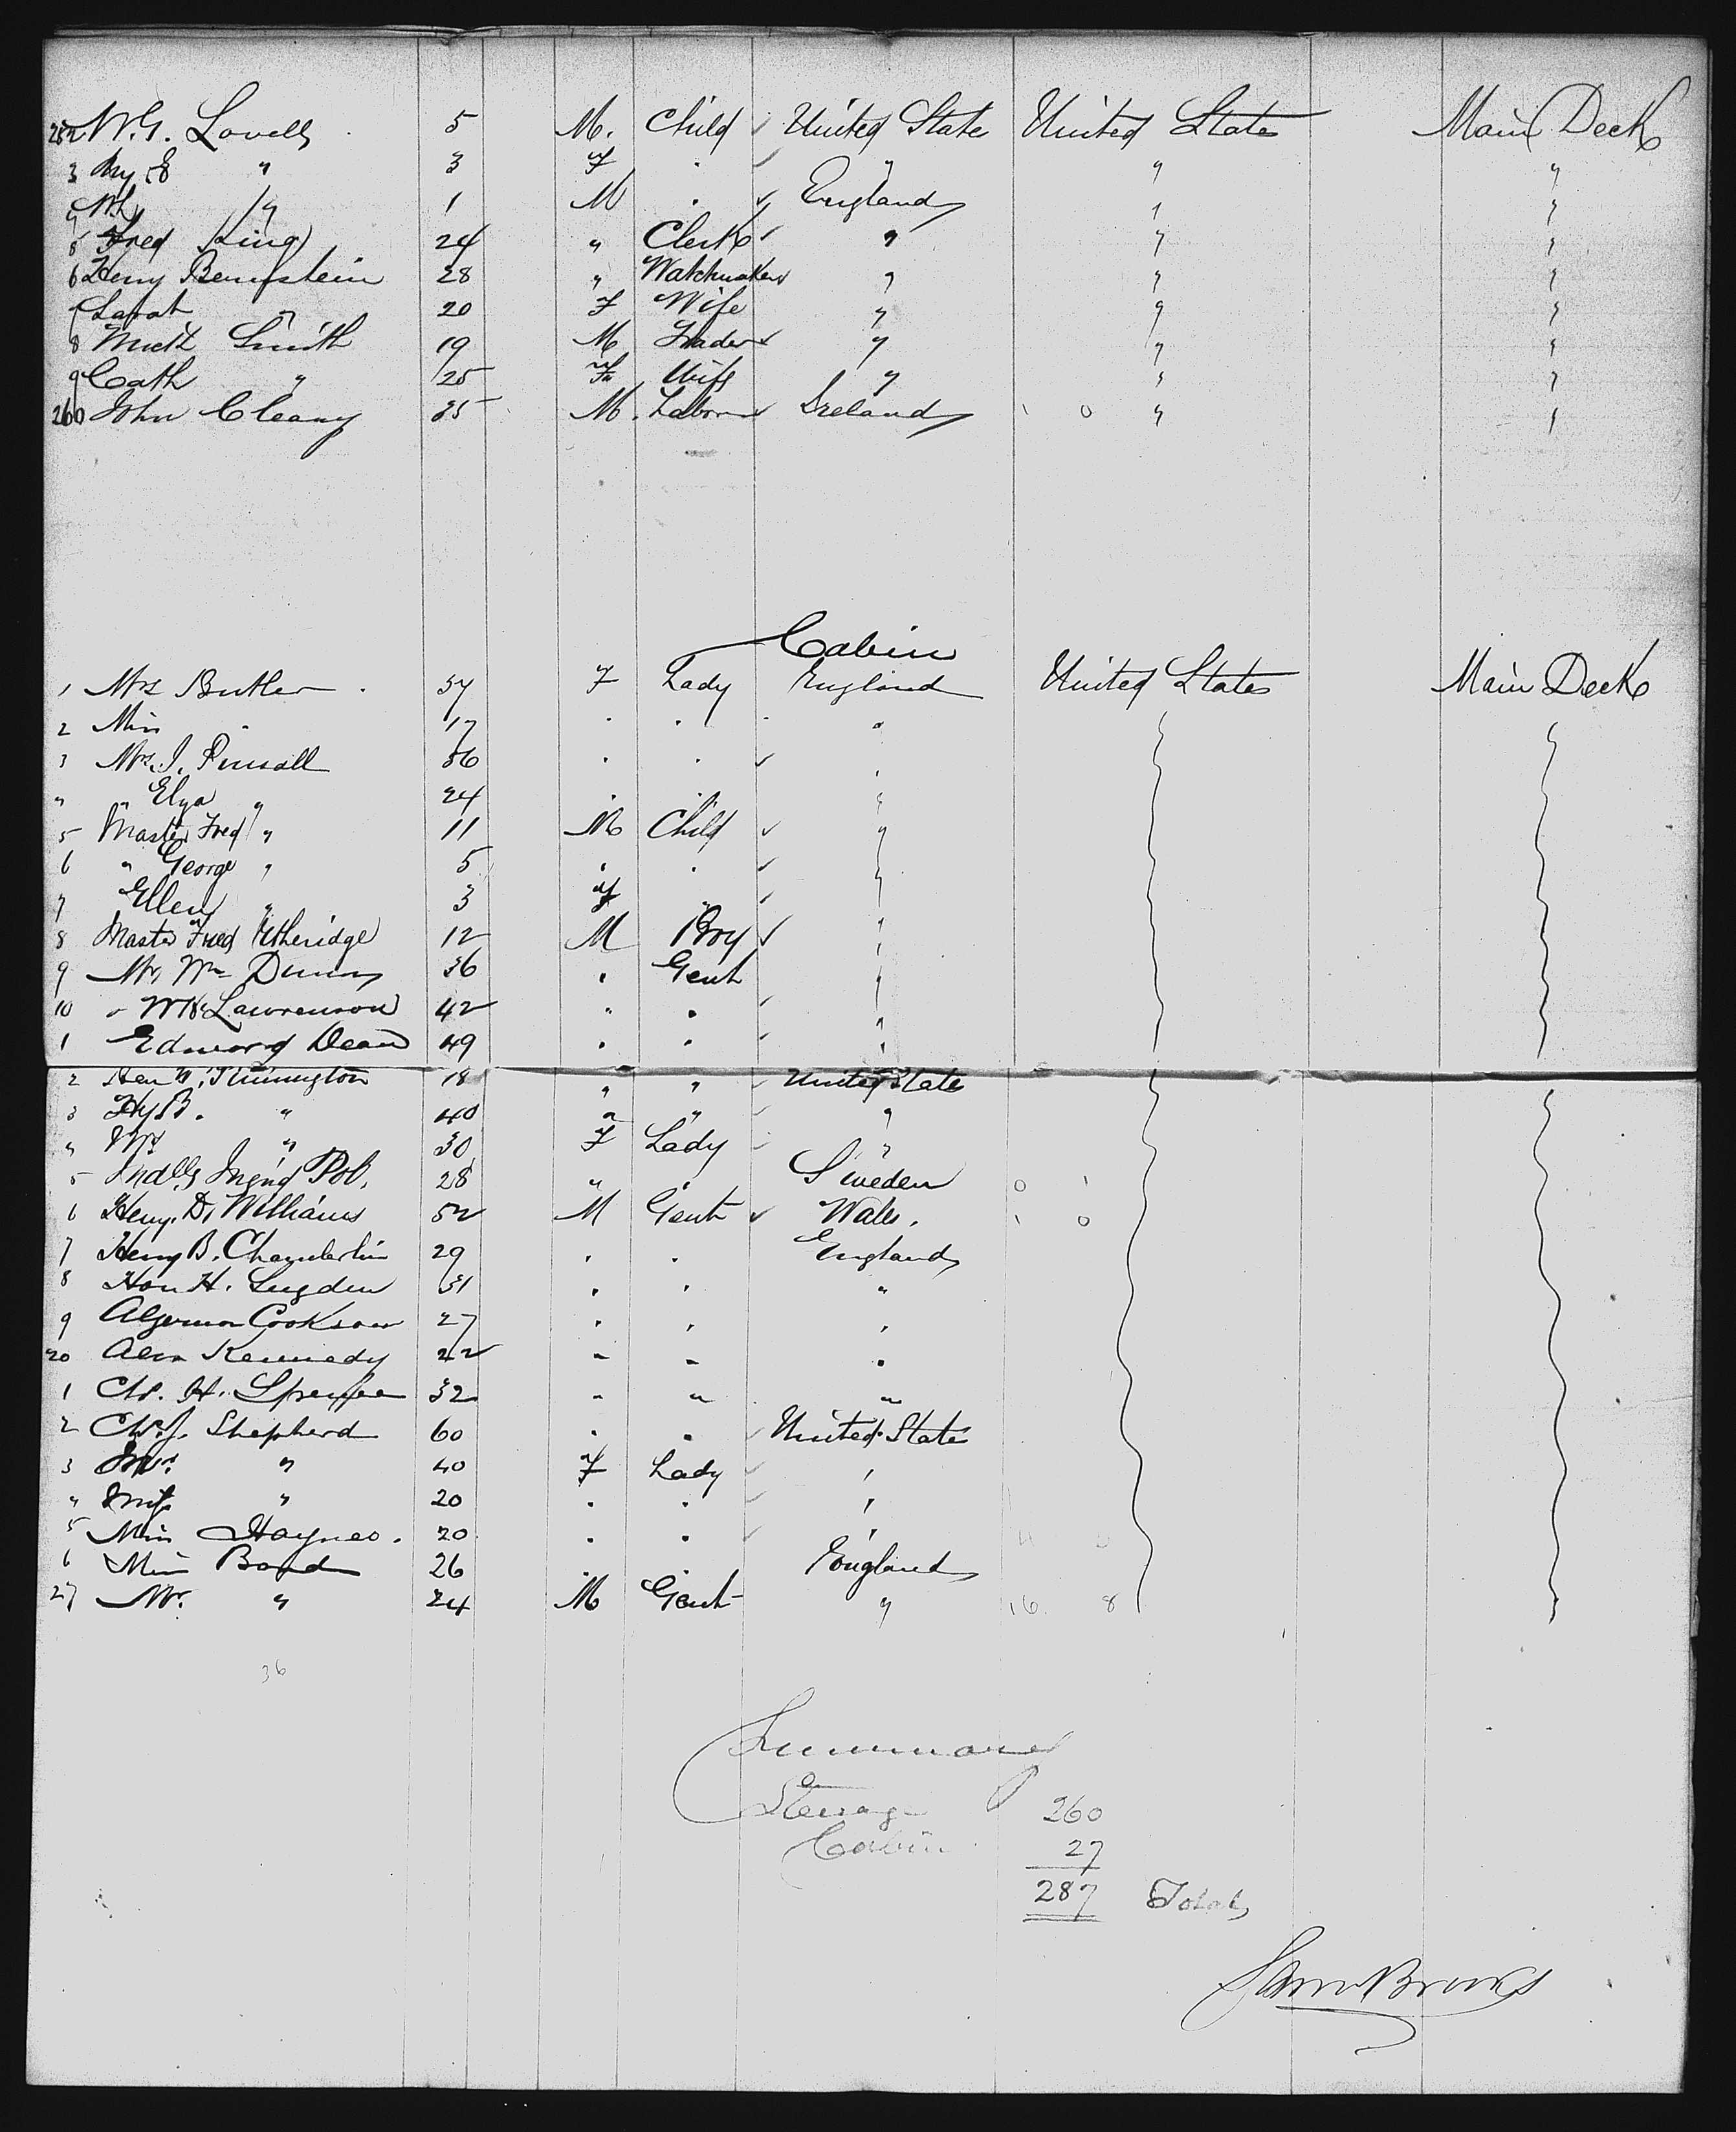 252 W.G. Lovell 5 M. Child United State United States Main Deck
3 My E " 3 F . " " "
4 " 1 M . England " "
5 Fred King 24 " Clerk " " "
6 Henry Bernstein 28 " Watchmaker " " "
7 Sarah " 20 F Wife " " "
8 Smith 19 M Trader " " "
9 Cath " 25 F Wife " " "
260 John Cleary 35 M. Labor Ireland 1 0 " "
Cabin
1 Mrs Butler 57 F Lady England United States Main Deck
2 Miss " 17 . . "
3 Mrs. J. 36 . . .
" " Elza " 24 . . "
5 Master Fred " 11 M Child "
6 " George " 5 " . "
7 Ellen " 3 F " "
8 Master Fred Etheridge 12 M Boy "
9 Mr. Wm Dunn 36 . Gent "
10 " Lawrenson 42 " . "
1 Edward Dean 49 . . "
2 18 " " United State
3 Hy B. " 40 " " "
" Mrs " 30 F Lady "
5 28 " " Sweden 0 1
6 Heny. D. Williams 52 M Gent Wales. 1 0
7 Henry B. Chamberlin 29 . . England
8 Hon H. Sugden 31 . . "
9 Algernon Cookson 27 . . .
20 Alex Kennedy 22 " " "
1 H. 32 " " "
2 Shepherd 60 . . United State
3 Mrs. " 40 F Lady "
" " 20 . . "
5 Miss Haynes. 20 . . "
6 Miss Bond 26 . . England
27 Mr. " 24 M Gent " 16. 8
36
Summary
Steerage 260
Cabin 27
287 Total